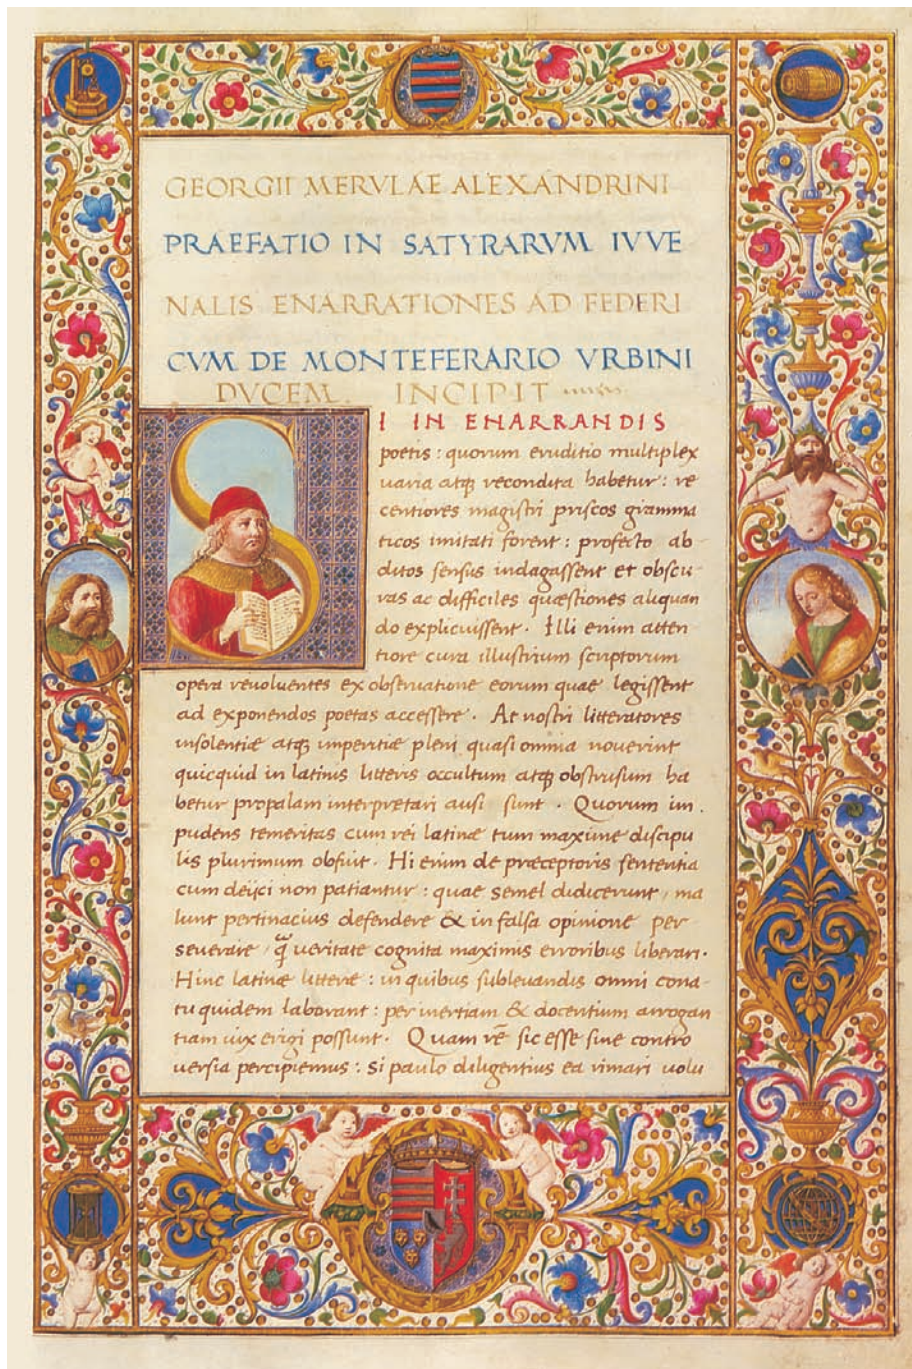 GEORGII MERVLAE ALEXANDRINI
PRAEFATIO IN SATYRARVM IVVE
NALIS ENARRATIONES AD FEDERI
CVM DE MONTEFERARIO VRBINI
DVCEM INCIPIT
SI IN ENARRANDIS
poetis: quorum eruditio multiplex
uaria atq; recondita habetur: re
centiores magistri priscos gramma
ticos imitati forent: profecto ab
ditos sensus indagassent et obscu
ras ac difficiles quaestiones aliquan
do explicuissent. Illi enim atten
tiore cura illustrium scriptorum
opera reuoluentes ex obseruatione eorum quae legissent
ad exponendos poetas accessere. At nostri litteratores
insolentię atq; imperitię pleni quasi omnia nouerint
quicquid in latinis litteris occultum atq; obstrusum ha
betur propalam interpretari ausi sunt. Quorum im
pudens temeritas cum rei latinę tum maxime discipu
lis plurimum obfuit. Hi enim de praeceptoris sententia
cum deijci non patiantur: quae semel didicerunt, ma
lunt pertinacius defendere & in falsa opinione per
seuerare, q̃ ueritate cognita maximis erroribus liberari.
Hinc latinę litterę: in quibus subleuandis omni cona
tu quidem laborant: per inertiam & docentium arrogan
tiam uix erigi possunt. Quam rē sic esse sine contro
uersia percipiemus: si paulo diligentius ea rimari uolu